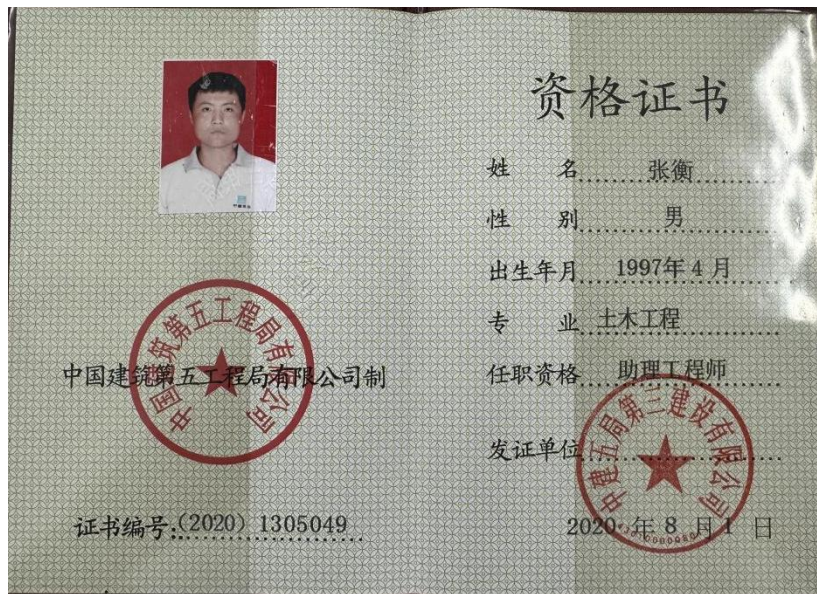 中国建筑第五工程局有限公司
中国建筑第五工程局有限公司制
证书编号:(2020) 1305049
资格证书
姓 名 张衡
性 别 男
出生年月 1997年4月
专 业 土木工程
任职资格 助理工程师
发证单位
中建五局第三建设有限公司
2020 年 8 月 1 日